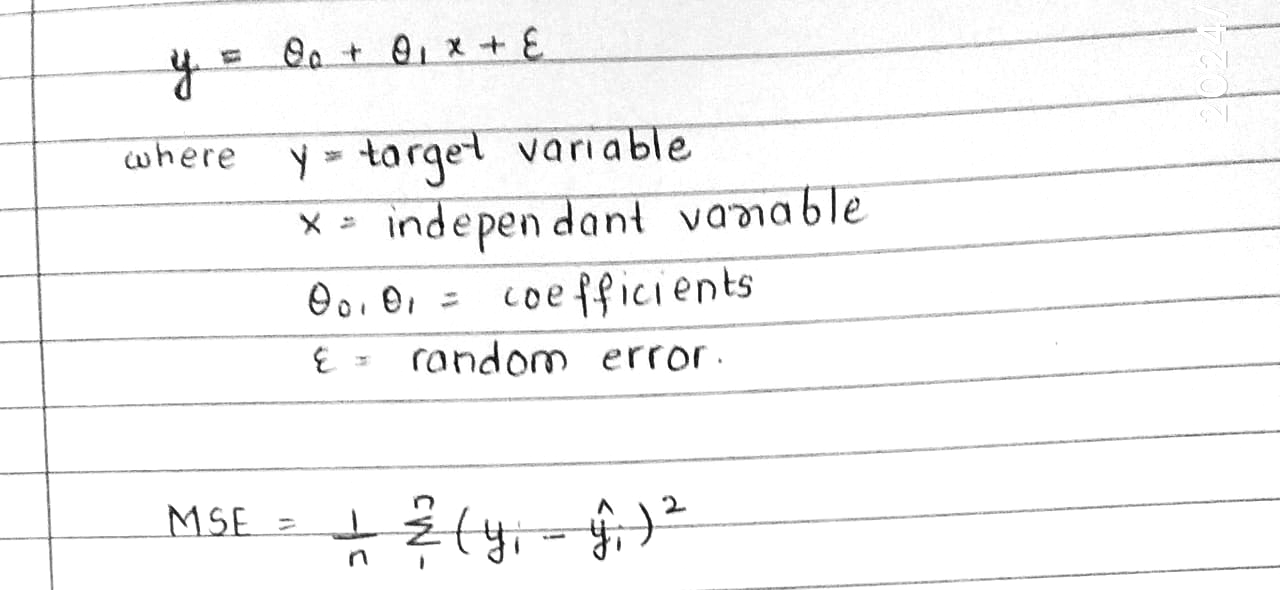 y = θ₀ + θ₁ x + ε
where y = target variable
x = independant variable
θ₀, θ₁ = coefficients
ε = random error.
MSE = 1/n Σ₁ⁿ (yᵢ - ŷᵢ)²
2024/